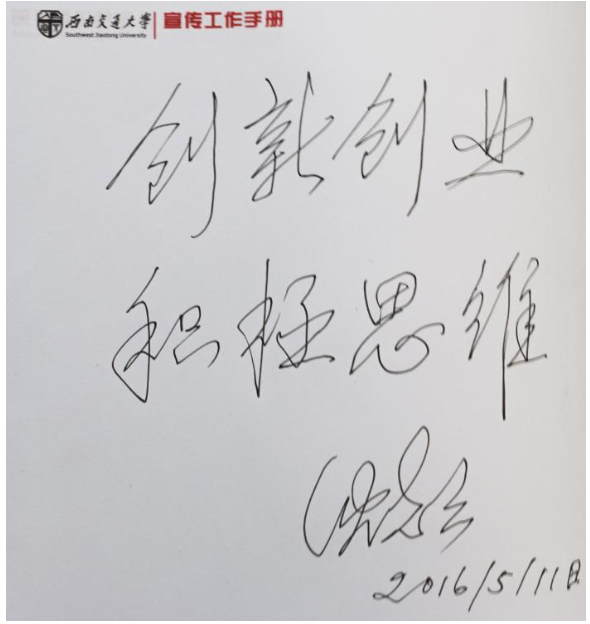 西南交通大学 宣传工作手册
Southwest Jiaotong University
创新创业
积极思维
2016/5/11日